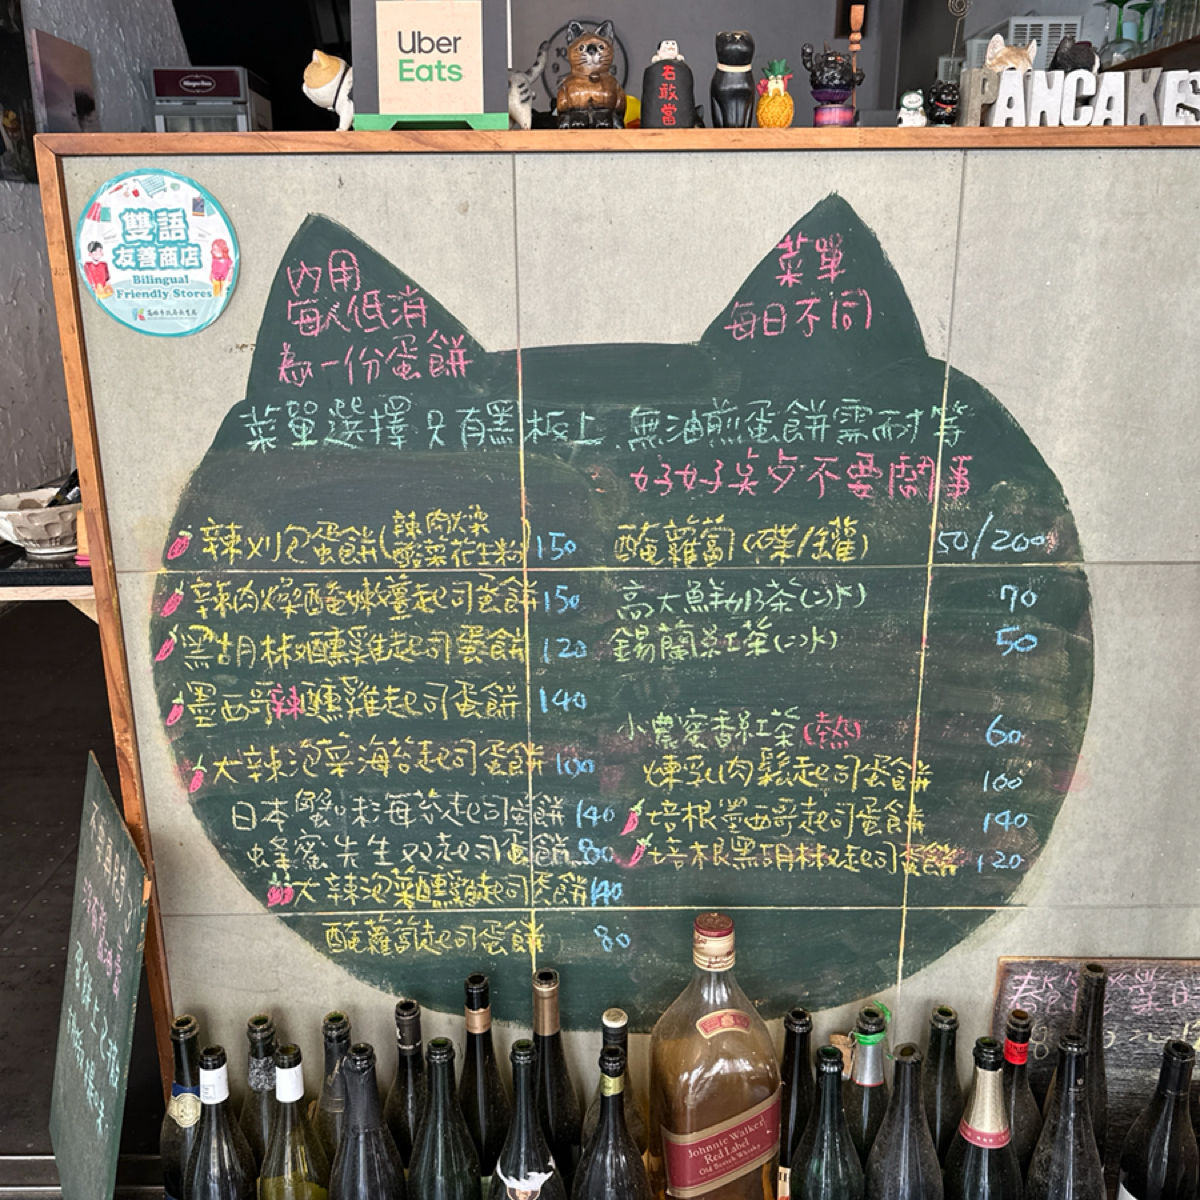 Uber
Eats
石敢當
PANCAKE
雙語
友善商店
Bilingual
Friendly Stores
內用
每人低消
為一份蛋餅
菜單
每日不同
菜單選擇只有黑板上 無油煎蛋餅需耐等
好好笑点不要鬧事
辣刈包蛋餅(辣肉燥酸菜花生粉) 150
辣肉燥醃嫩薑起司蛋餅 150
黑胡椒燻雞起司蛋餅 120
墨西哥辣燻雞起司蛋餅 140
大辣泡菜海苔起司蛋餅 100
日本蟹味海苔起司蛋餅 140
蜂蜜先生双起司蛋餅 80
大辣泡菜燻雞起司蛋餅 140
醃蘿蔔起司蛋餅 80
醃蘿蔔(碟/罐) 50/200
高大鮮奶茶(冰) 70
錫蘭紅茶(冰) 50
小農蜜香紅茶(熱) 60
煉乳肉鬆起司蛋餅 100
培根墨西哥起司蛋餅 140
培根黑胡椒起司蛋餅 120
Johnnie Walker
Red Label
Old Scotch Whisky